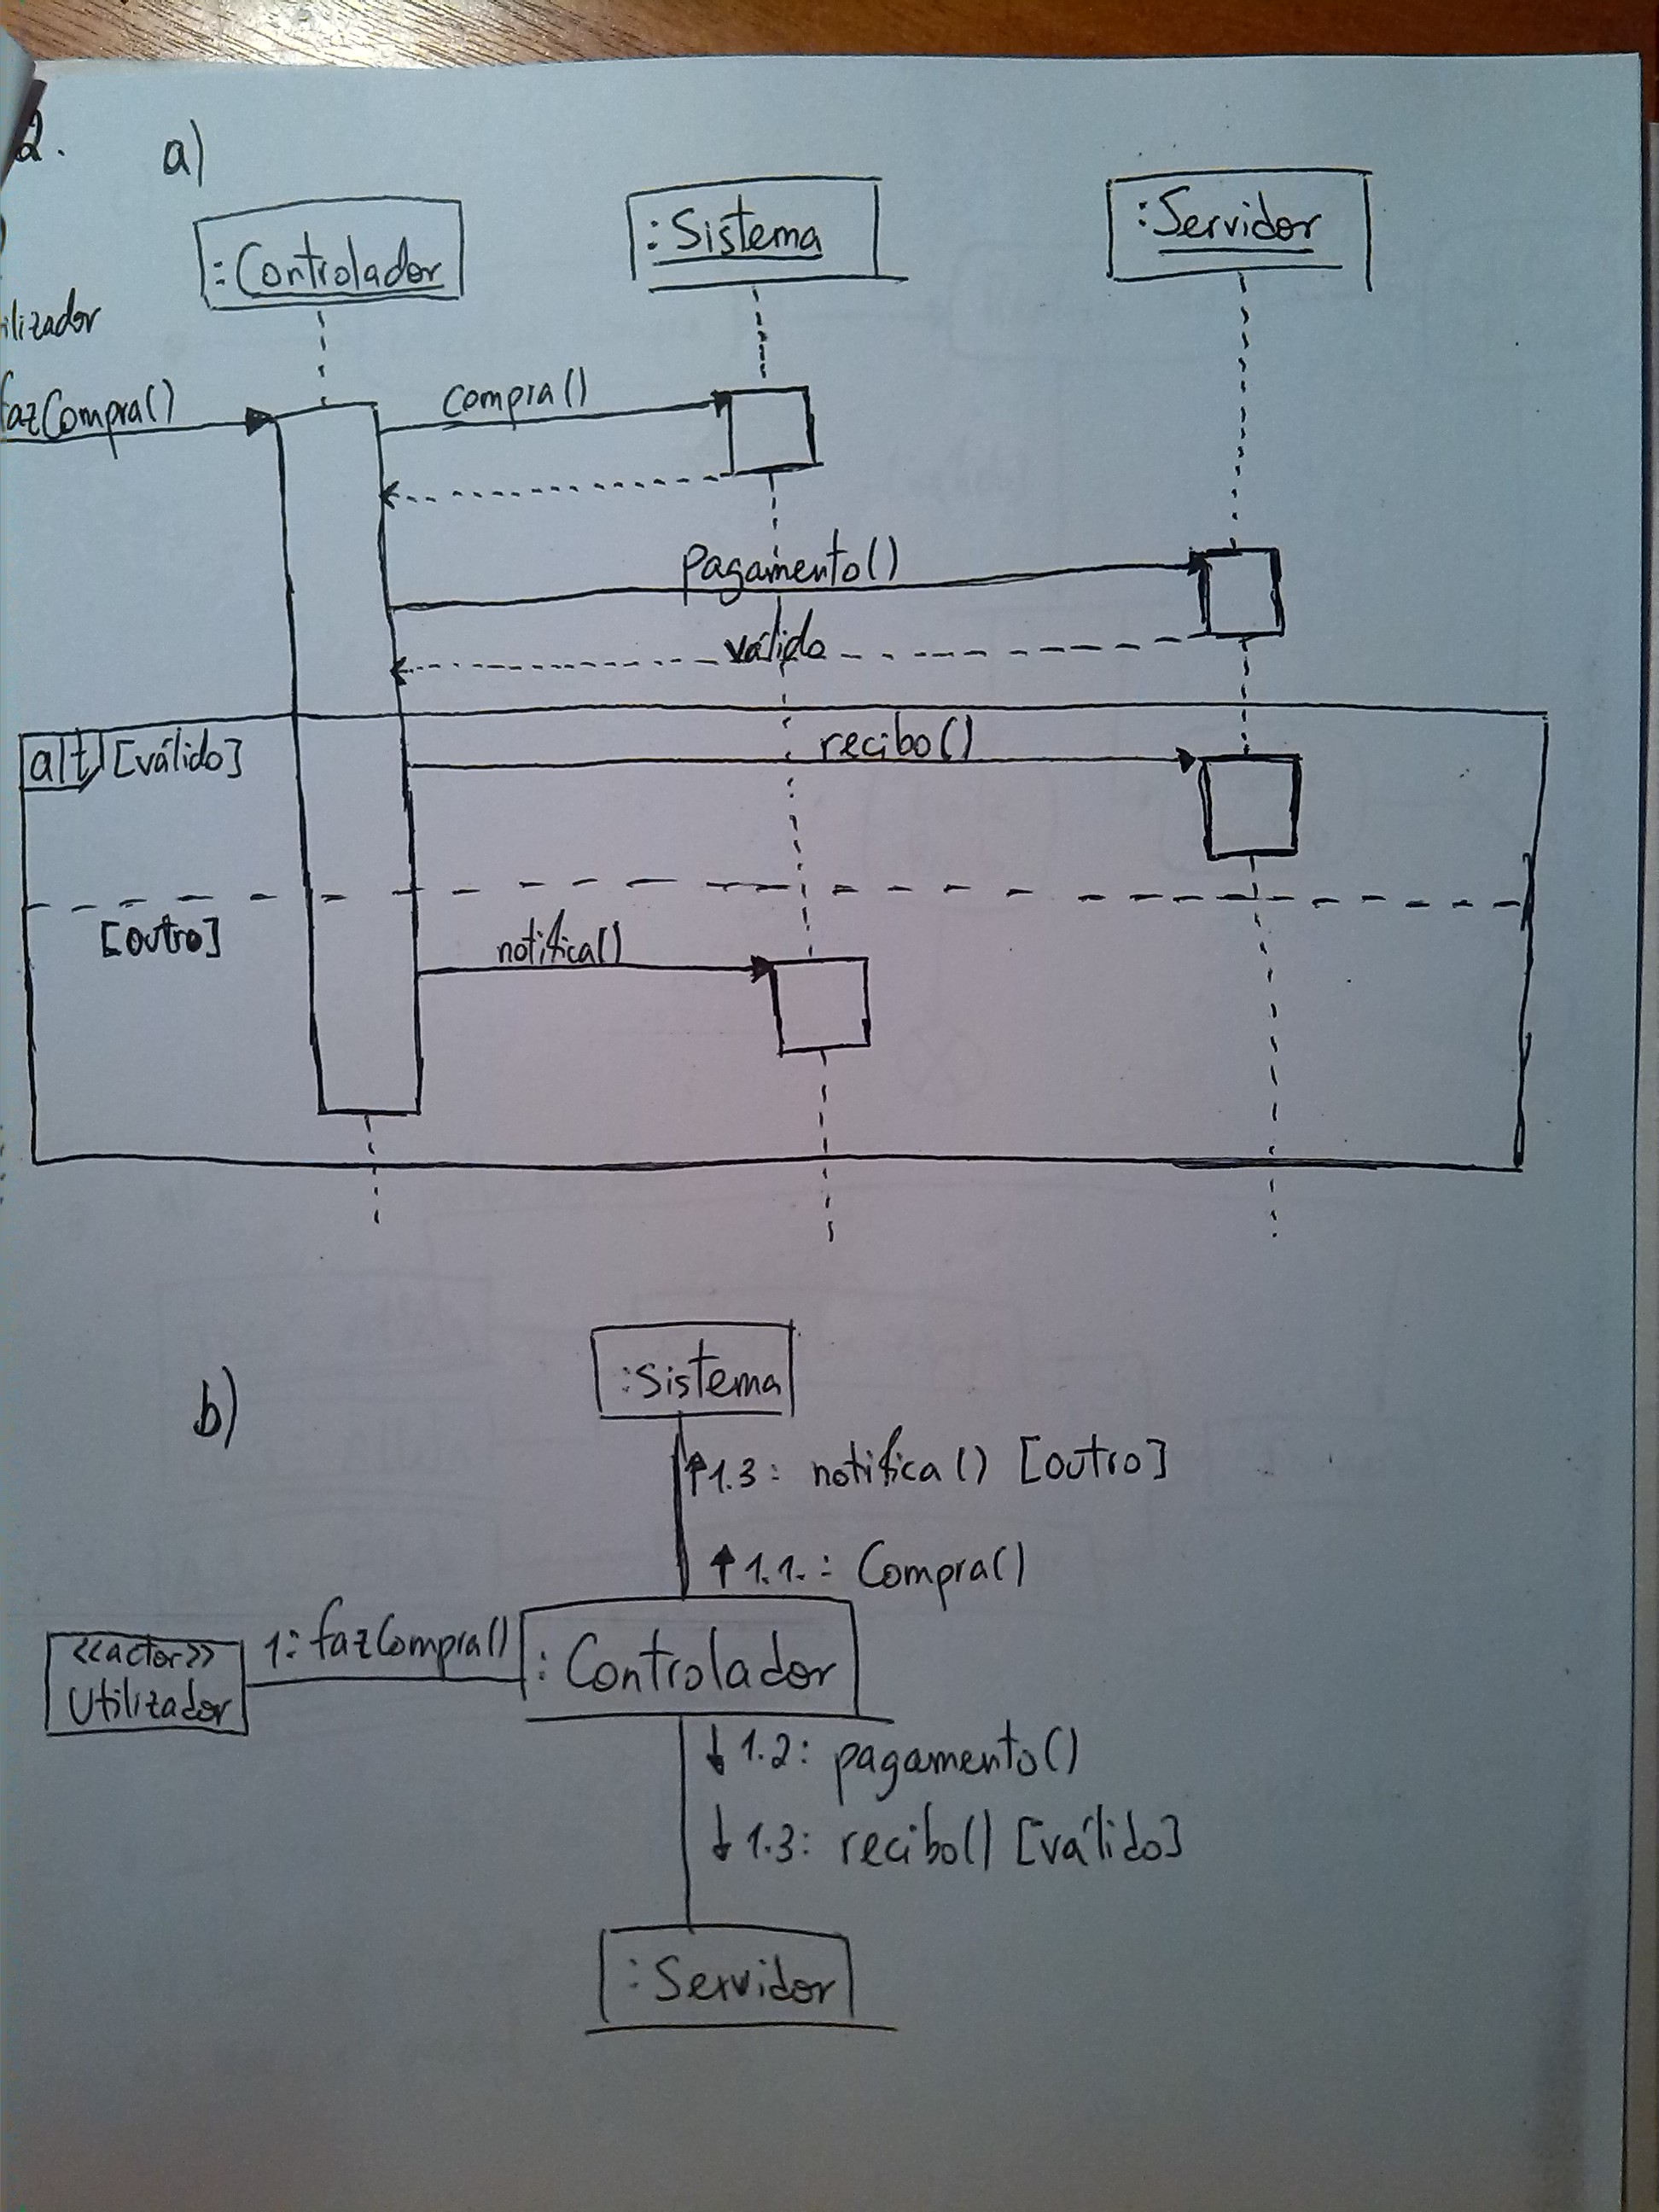 2. a)
:Controlador :Sistema :Servidor
ilizador
fazCompra() compra()
pagamento()
válido
alt [válido] recibo()
[outro]
notifica()
b)
:Sistema
1.3: notifica() [outro]
1.1.: Compra()
<<actor>>
Utilizador
1: fazCompra()
:Controlador
1.2: pagamento()
1.3: recibo() [válido]
:Servidor